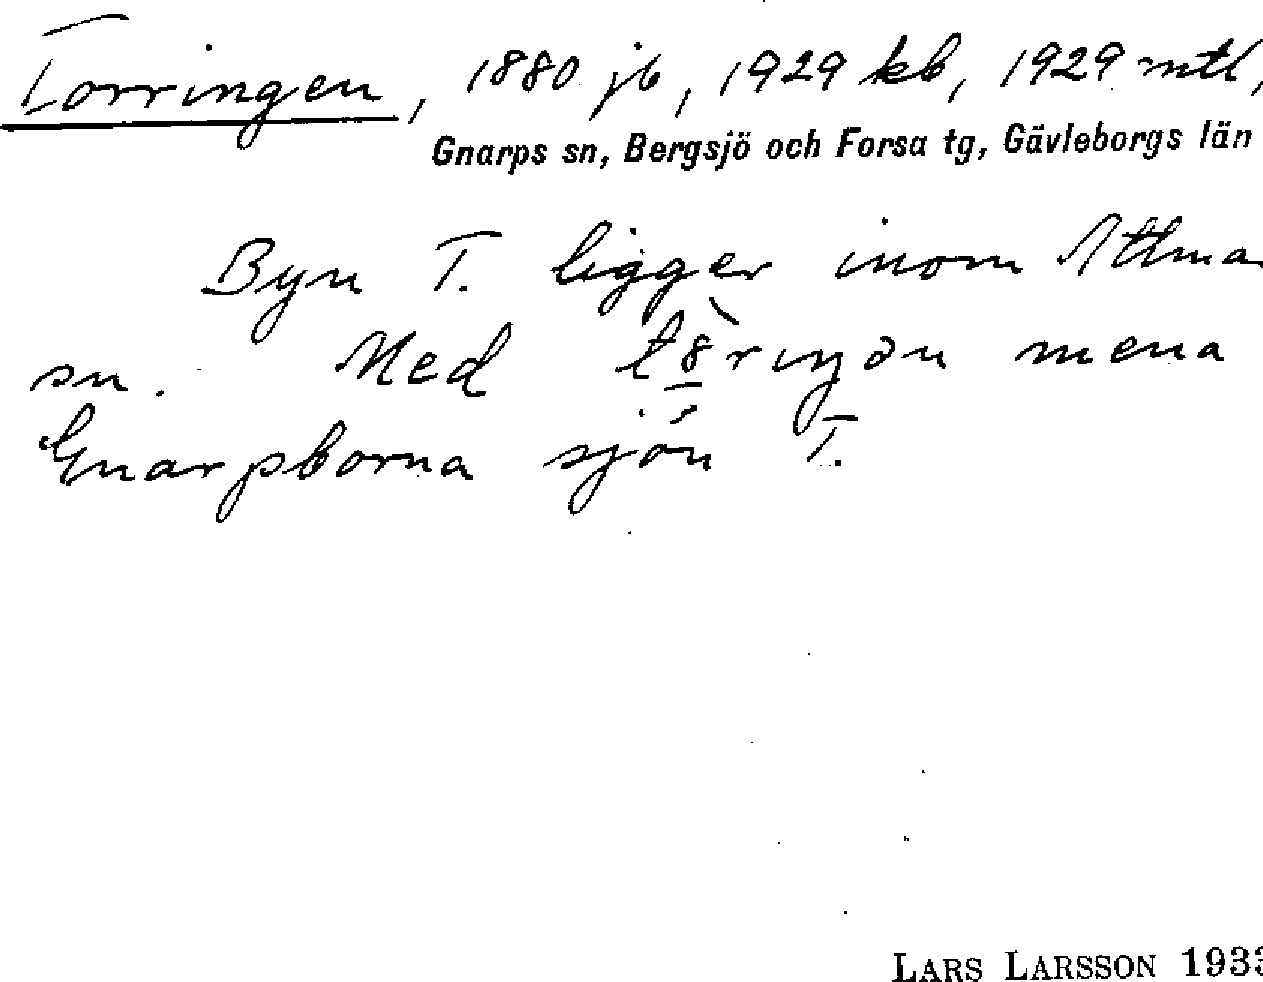 Torringen, 1880 jb, 1929 kb, 1929 mtl,
Gnarps sn, Bergsjö och Forsa tg, Gävleborgs län
Byn T. ligger inom Attma
sn. Med mena
Gnarpborna sjön T.
LARS LARSSON 1933